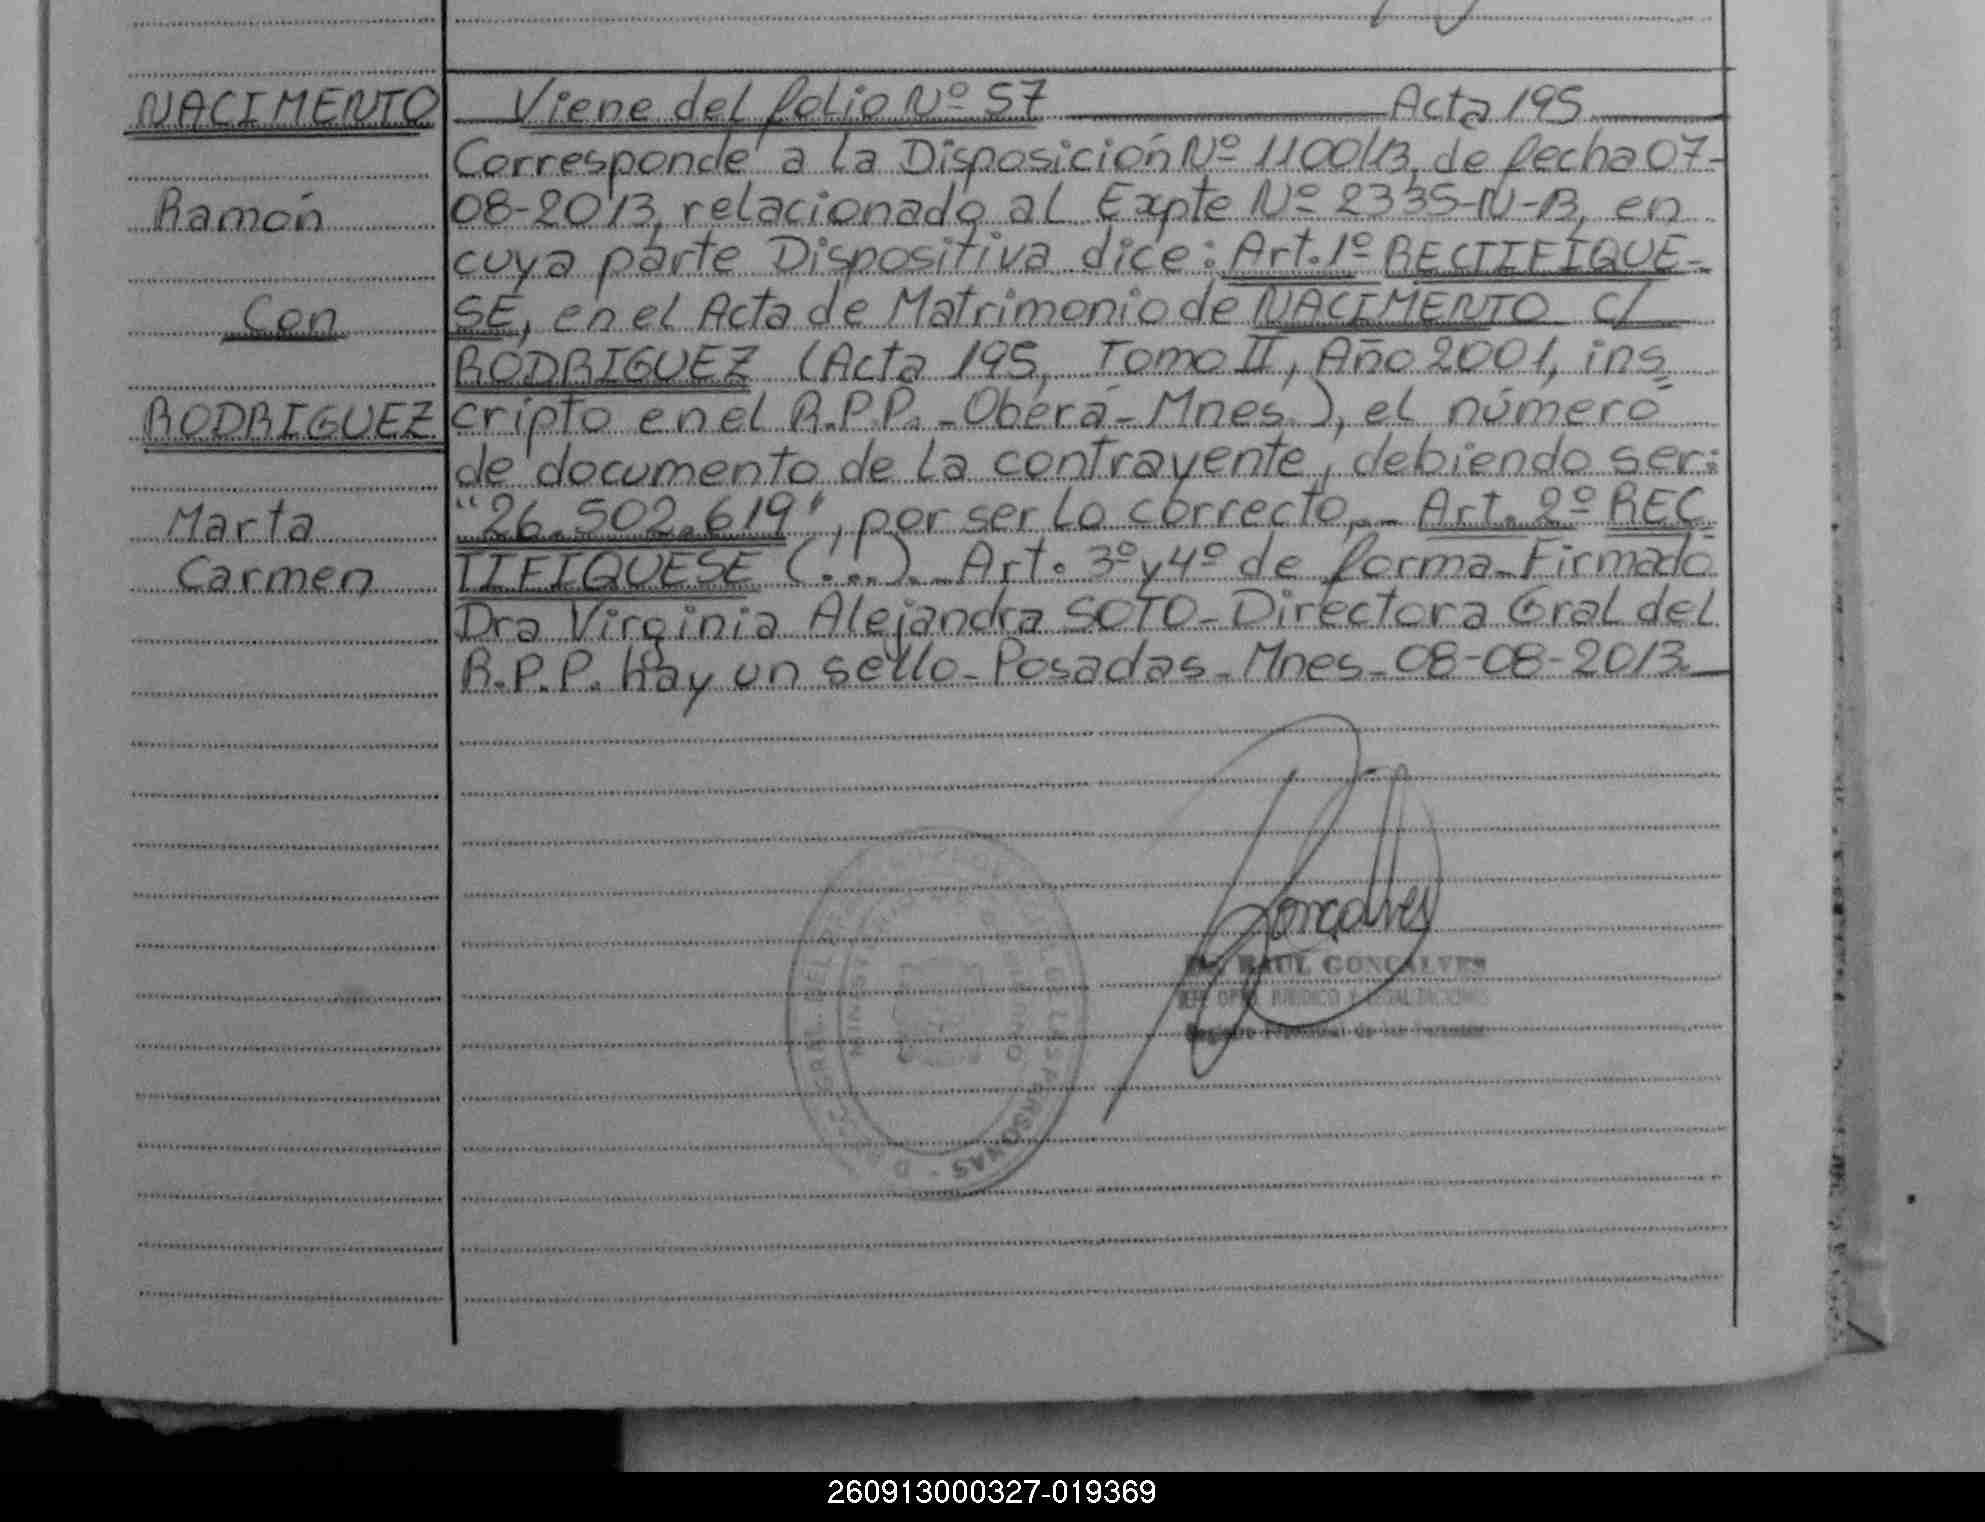 NACIMENTO
Ramón
Con
RODRIGUEZ
Marta
Carmen
Viene del folio Nº 57 Acta 195
Corresponde a la Disposición Nº 1100/13, de fecha 07-
08-2013, relacionado al Expte Nº 2335-N-13, en
cuya parte Dispositiva dice: Art. 1º RECTIFIQUE-
SE, en el Acta de Matrimonio de NACIMENTO C/
RODRIGUEZ (Acta 195, Tomo II, Año 2001, ins
cripto en el R.P.P. - Oberá - Mnes.), el número
de documento de la contrayente, debiendo ser:
"26.502.619", por ser lo correcto,.- Art. 2º REC
TIFIQUESE (...).- Art. 3º y 4º de forma - Firmado
Dra Virginia Alejandra SOTO - Directora Gral del
R.P.P. hay un sello - Posadas - Mnes - 08-08-2013.
Goncalves
RAUL GONCALVES
JURIDICO Y LEGALIZACIONES
de las Personas
LAS PERSONAS
260913000327-019369